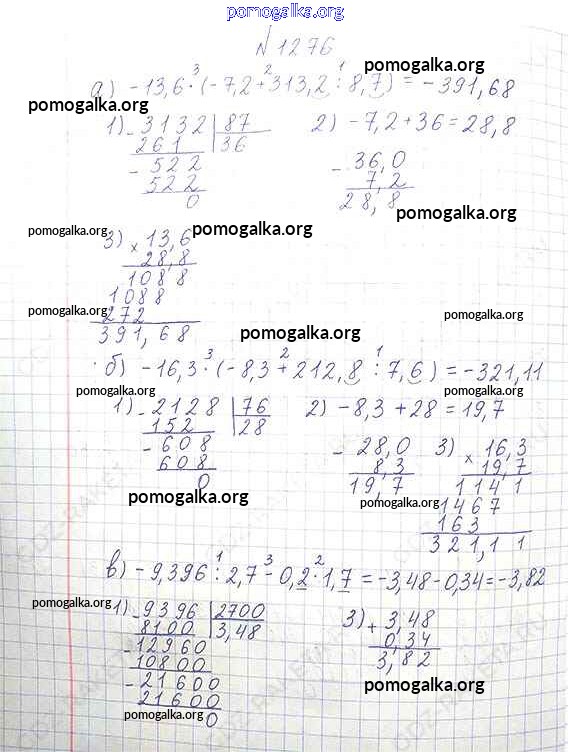 pomogalka.org
N 1276
а) -13,6 ·³ (-7,2 +² 313,2 :¹ 8,7) = -391,68
pomogalka.org
pomogalka.org
pomogalka.org
1) - 3132 | 87
261 | 36
- 522
522
0
2) -7,2 + 36 = 28,8
- 36,0
7,2
28,8
pomogalka.org
pomogalka.org
pomogalka.org
3) × 13,6
28,8
1088
1088
272
391,68
pomogalka.org
pomogalka.org
pomogalka.org
б) -16,3 ·³ (-8,3 +² 212,8 :¹ 7,6) = -321,11
pomogalka.org
pomogalka.org
1) - 2128 | 76
152 | 28
- 608
608
0
2) -8,3 + 28 = 19,7
- 28,0
8,3
19,7
3) × 16,3
19,7
1141
1467
163
321,11
pomogalka.org
pomogalka.org
в) -9,396 :¹ 2,7 -³ 0,2 ·² 1,7 = -3,48 - 0,34 = -3,82
pomogalka.org
pomogalka.org
1) - 9396 | 2700
8100 | 3,48
- 12960
10800
- 21600
21600
0
3) + 3,48
0,34
3,82
pomogalka.org
pomogalka.org